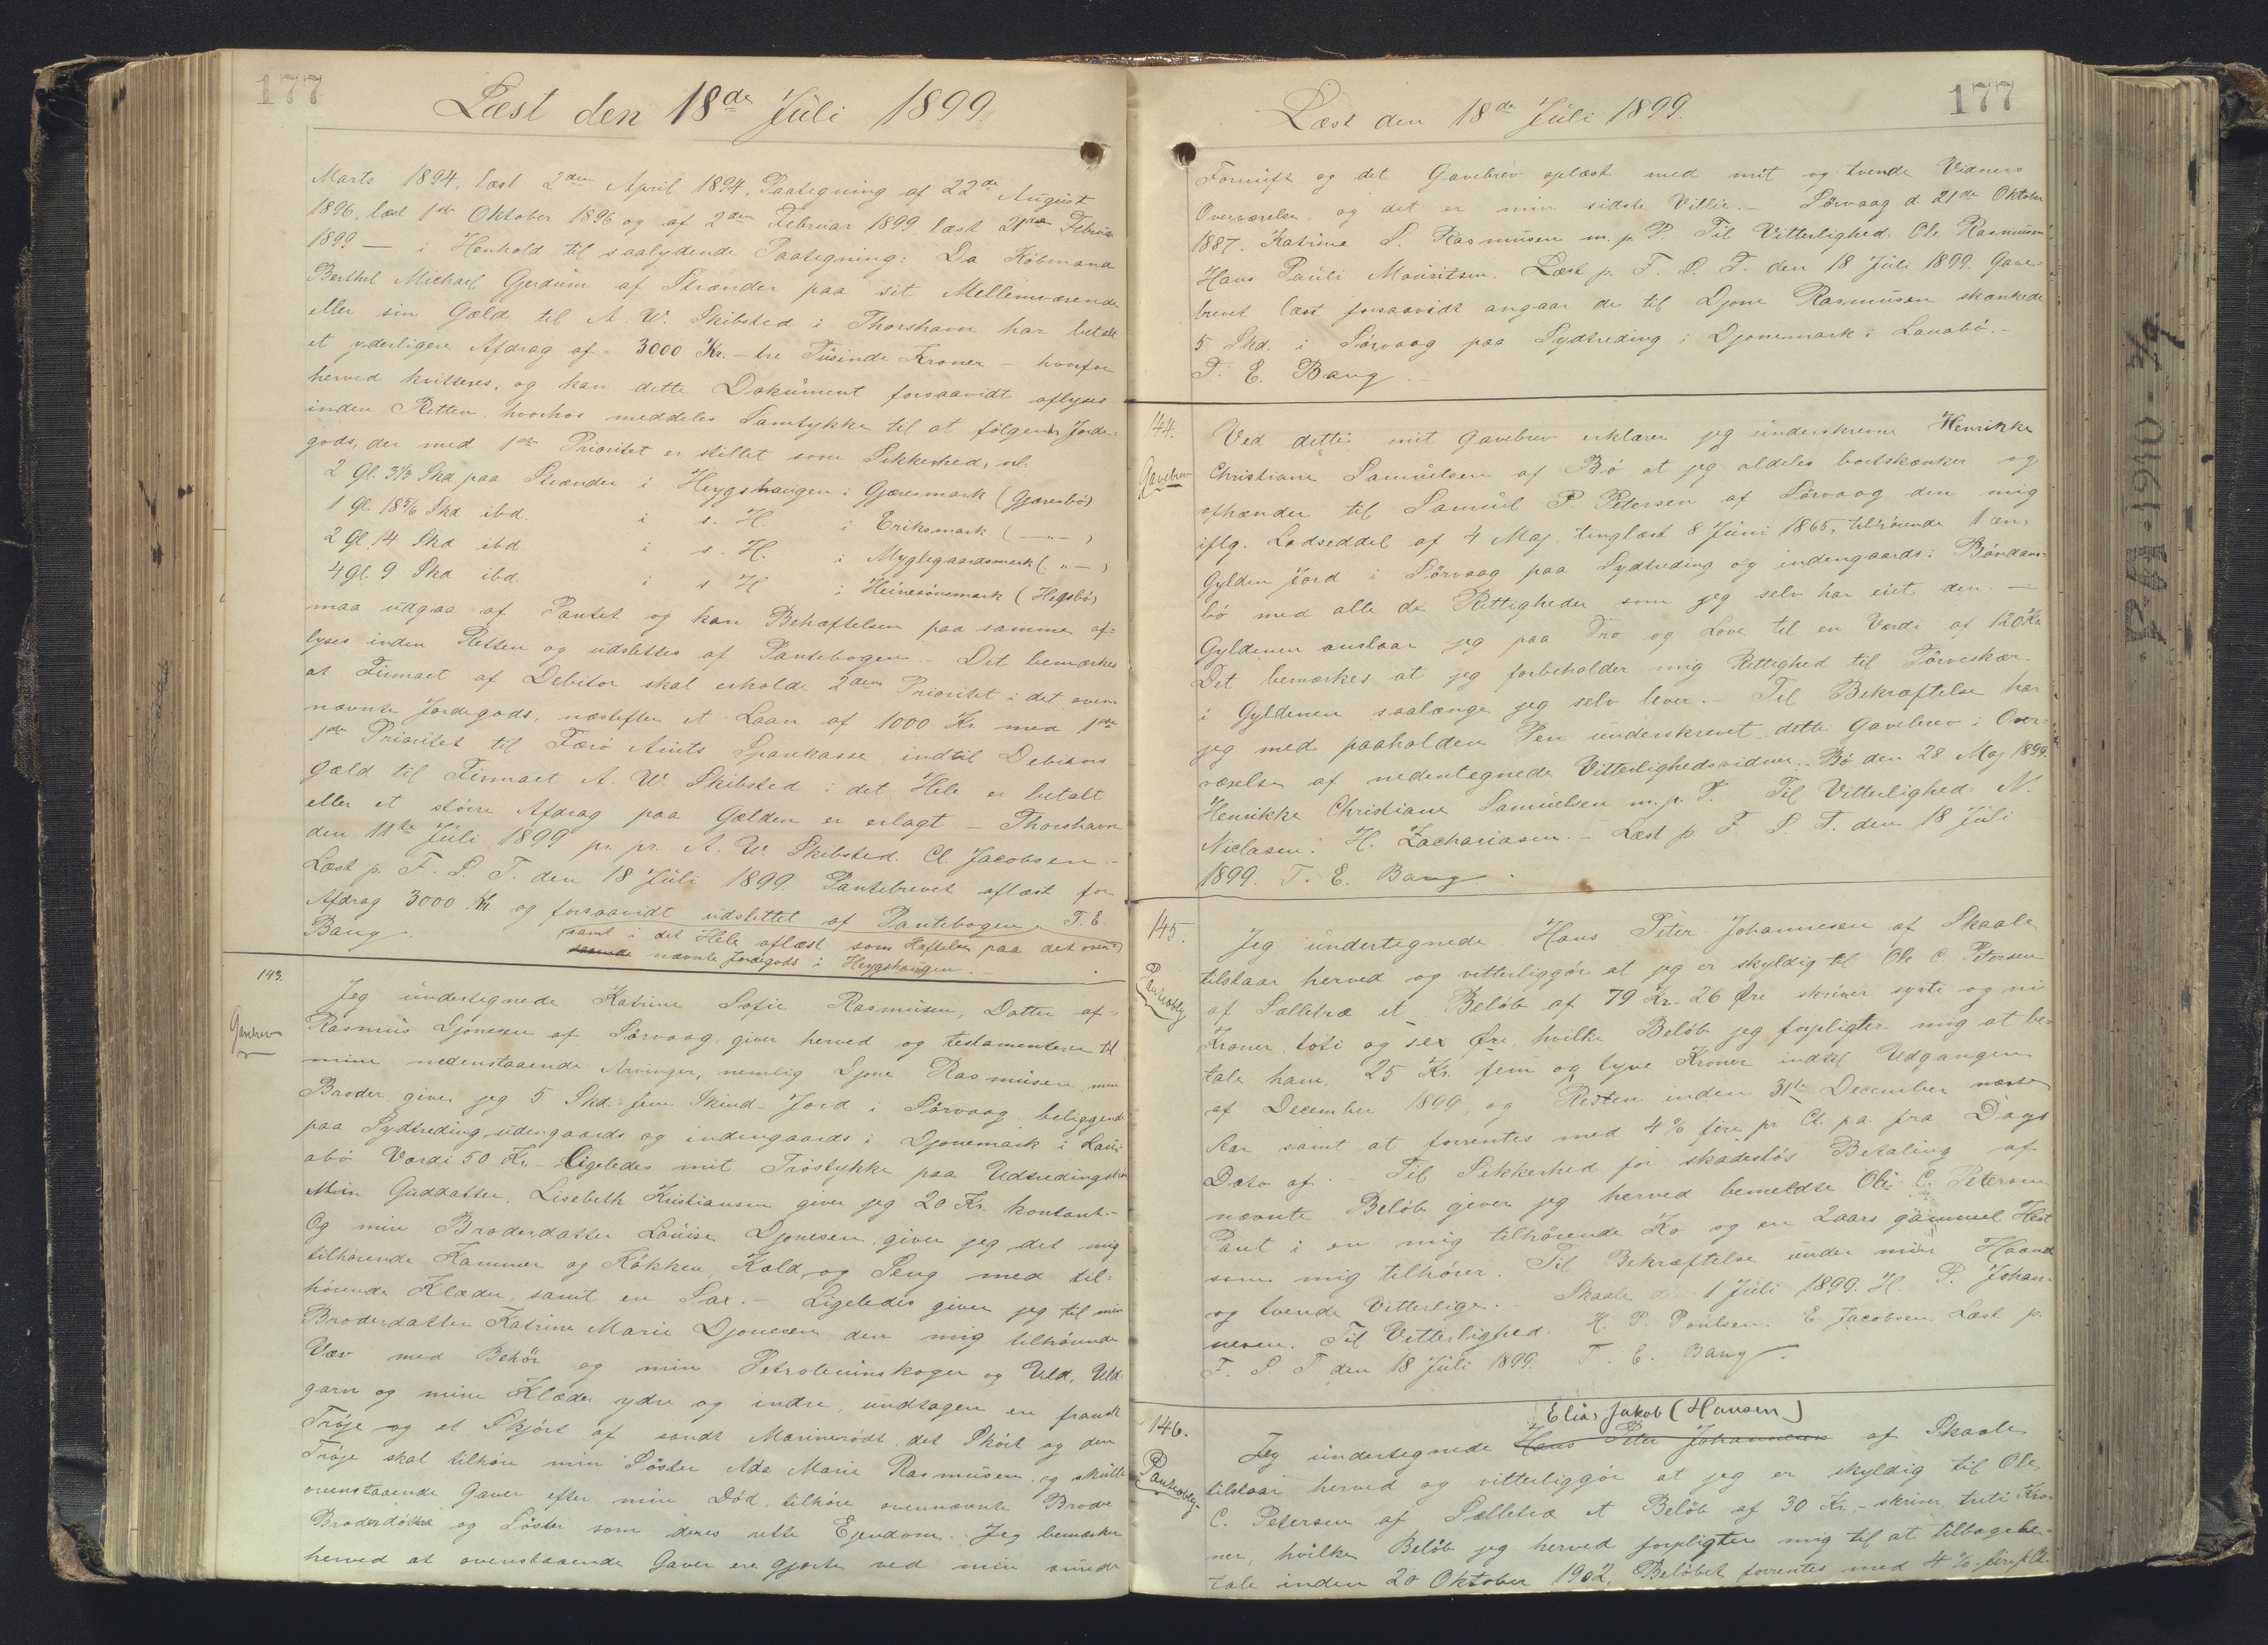 177
Læst den 18de Juli 1899.
Marts 1894, læst 2den April 1894. Paategning af 22de August
1896, læst 1ste Oktober 1896 og af 2den Februar 1899 læst 21de Februar
1899 — i Henhold til saalydende Paategning: Da Købmand
Berthel Michael Gjerdum af Strænder paa sit Mellemværende
eller sin Gæld til A. W. Skibsted i Thorshavn har betalt
et yderligere Afdrag af 3000 Kr. – tre Tusinde Kroner – hvorfor
herved kvitteres, og kan dette Dokument forsaavidt aflyses
inden Retten, hvorhos meddeles Samtykke til at følgende Jorde-
gods, der med 1ste Prioritet er stillet som Sikkerhed, nl.
2 Gl. 3 1/3 Skd paa Strænder i Heygshaugen i Gjæresmark (Gjæresbø)
1 Gl. 18 5/6 Skd ibd. i s. H. i Eriksmark ( — „ — )
2 Gl. 14 Skd ibd i s. H. i Myglegaardsmark ( „ — )
4 Gl. 9 Skd ibd i s H i Heinesønemark (Hegsbø)
maa udgaa af Pantet og kan Behæftelsen paa samme af-
lyses inden Retten og udslettes af Pantebogen. – Det bemærkes
at Firmaet af Debitor skal erholde 2den Prioritet i det oven-
nævnte Jordegods, næstefter et Laan af 1000 Kr. med 1ste
1ste Prioritet til Færø Amts Sparekasse, indtil Debitors
Gæld til Firmaet A. W. Skibsted i det Hele er betalt
eller et større Afdrag paa Gælden er erlagt – Thorshavn
den 11te Juli 1899 pr. pr. A. W. Skibsted. Cl. Jacobsen. –
Læst p. F. S. T. den 18 Juli 1899. Pantebrevet aflæst for
Afdrag 3000 Kr og forsaavidt udslettet af Pantebogen, T. E.
Bang. samt i det Hele aflæst som Hæftelse paa det oven-
nævnte Jordegods i Heygshaugen. –
143.
Gavebrev
Jeg undertegnede Katrine Sofie Rasmusen, Datter af
Rasmus Djonesen af Sørvaag giver herved og testamenterer til
mine nedenstaaende Arvinger, nemlig Djone Rasmusen, min
Broder, giver jeg 5 Skd. fem Skind – Jord i Sørvaag beliggende
paa Sydtreding udengaards og indengaards i Djonemark i Lau-
abø Værdi 50 Kr. – Ligeledes mit Tróstykke paa
Min Guddatter, Lisebeth Kristiansen giver jeg 20 Kr. kontant. –
Og min Broderdatter Louise Djonesen, giver jeg det mig
tilhørende Kammer og Køkken, Kold og Seng med til-
hørende Klæder, samt en Sax. – Ligeledes giver jeg til min
Broderdatter Katrine Marie Djonesen den mig tilhørende
Væv med Behør og min Petroleumskoger og Uld, Uld-
garn og mine Klæder ydre og indre, undtagen en fransk
Trøje og et Skjørt af sandt Marinerødt, det Skørt og den
Trøje skal tilhøre min Søster Ada Marie Rasmusen, og skulle
ovenstaaende Gaver efter min Død, tilhøre ovennævnte Broder
Broderdøttre og Søster som deres rette Ejendom. Jeg bemærker
herved at ovenstaaende Gaver ere gjorte ved min sunde
177
Læst den 18de Juli 1899.
Fornuft og det Gavebrev oplæst med mit og tvende Vidners
Overværelse og det er min sidste Villie. – Sørvaag d. 21de Oktober
1887. Katrine S. Rasmusen m. p. P. Til Vitterlighed: Ole Rasmusen,
Hans Pauli Mouritsen. Læst p. F. S. T. den 18 Juli 1899. Gave-
brevet læst forsaavidt angaar de til Djone Rasmusen skænkede
5 Skd. i Sørvaag paa Sydtreding i Djonemark i Lauabø. –
T. E. Bang.
144.
Gavebrev
Ved dette mit Gavebrev erklærer jeg underskrevne Henrikke
Christiane Samuelsen af Bø at jeg aldeles bortskænker og
afhænder til Samuel P. Petersen af Sørvaag den mig
iflg. Lodseddel af 4 Maj, tinglæst 8 Juni 1865, tilhørende 1 en
Gylden Jord i Sørvaag paa Sydtreding og indengaards i Bøndans-
bø med alle de Rettigheder som jeg selv har eiet den. –
Gyldenen anslaar jeg paa Tro og Love til en Værdi af 120 Kr.
Det bemærkes at jeg forbeholder mig Rettighed til Tørveskær
i Gyldenen saalænge jeg selv lever. – Til Bekræftelse har
jeg med paaholden Pen underskrevet dette Gavebrev i Over-
værelse af nedentegnede Vitterlighedsvidner. Bø den 28 Maj 1899.
Henrikke Christiane Samuelsen m. p. P. Til Vitterlighed: N.
Niclasen. H. Zachariasen. – Læst p F. S. T. den 18 Juli
1899. T. E. Bang.
145.
Panteoblg
Jeg undertegnede Hans Peter Johannesen af Skaale
tilstaar herved og vitterliggør at jeg er skyldig til Ole C. Petersen
af Selletræ et Beløb af 79 Kr. 26 Øre skriver syti og ni
Kroner toti og sex Øre, hvilke Beløb jeg forpligter mig at be-
tale ham, 25 Kr. fem og tyve Kroner indtil Udgangen
af December 1899, og Resten inden 31te December næste
Aar samt at forrentes med 4 % fire pr. Ct. p.a. fra Dags
Dato af. – Til Sikkerhed for skadesløs Betaling af
nævnte Beløb giver jeg herved bemeldte Ole C. Petersen
Pant i en mig tilhørende Ko og en 2aars gammel Hest
som mig tilhører. Til Bekræftelse under min Haand
og tvende Vitterlige. Skaale den 1 Juli 1899. H. P. Johan-
nesen. Til Vitterlighed: H. P. Poulsen. E. Jacobsen. Læst p.
F. S. T den 18 Juli 1899. T. E. Bang.
146.
Panteoblg.
Elias Jakob (Hansen)
Jeg undertegnede Hans Peter Johannesen af Skaale
tilstaar herved og vitterliggør at jeg er skyldig til Ole
C. Petersen af Selletræ et Beløb af 30 Kr. – skriver treti Kro-
ner, hvilke Beløb jeg herved forpligter mig til at tilbagebe-
tale inden 20 Oktober 1902, Beløbet forrentes med 4 % fire p Ct.